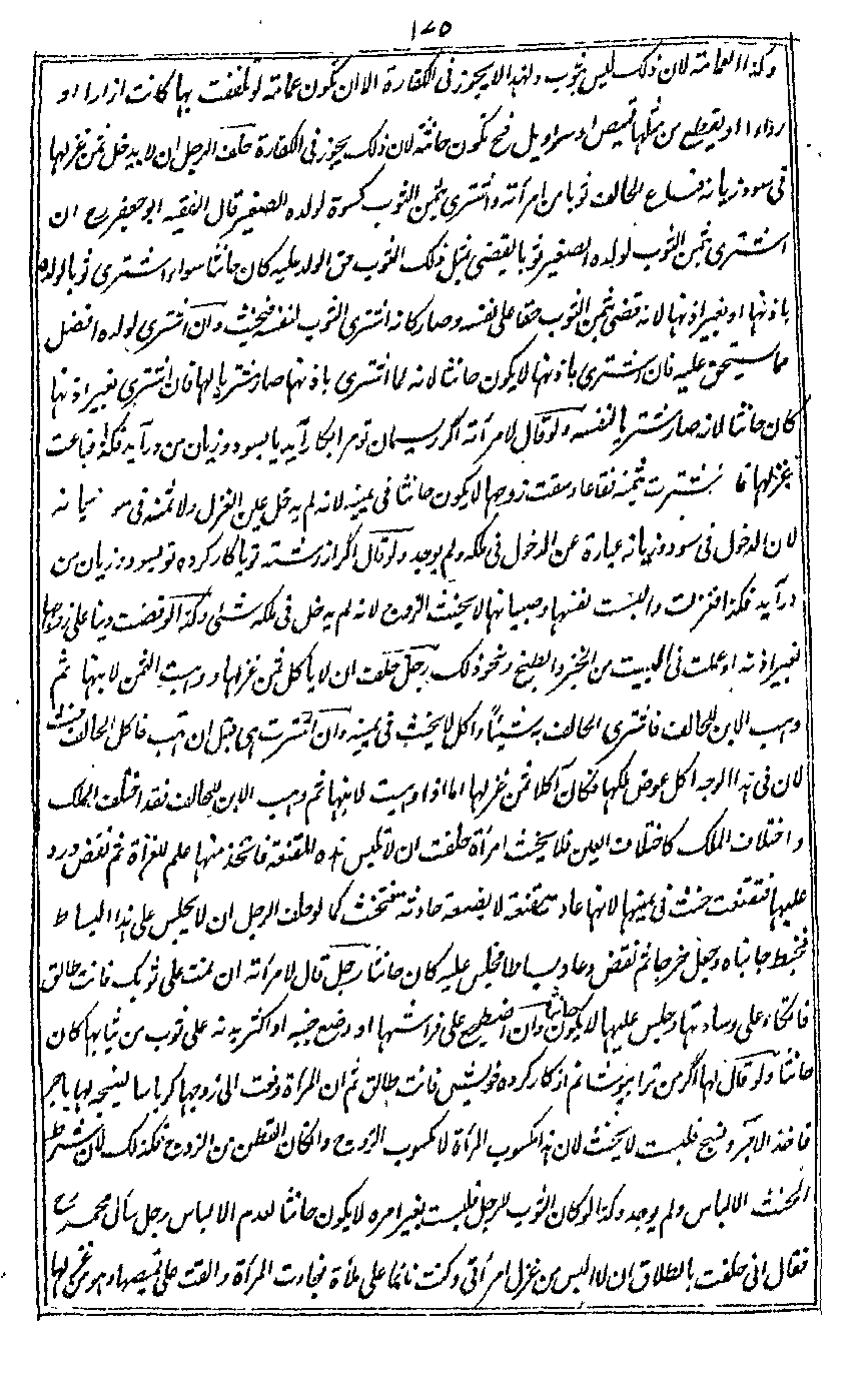 ١٧٥
وكذا العمامة لان ذلك ليس بثوب ولهذا لا يجوز فى الكفارة الا ان تكون عمامة لو تلففت بها كانت ازارا او
رداء او يقطع من مثلها قميص او سراويل فح تكون حانثة لان ذلك يجوز فى الكفارة حلف الرجل ان لا يدخل ثمن غزلها
فى سود وزيانه فباع الحالف ثوبا من امرأته واشترى بثمن الثوب كسوة لولده الصغير قال الفقيه ابو جعفر رح ان
اشترى بثمن الثوب لولده الصغير ثوبا يقضى بمثل ذلك الثوب حق الولد عليه كان حانثا سواء اشترى ثوبا لولده
باذنها او بغير اذنها لانه قضى بثمن الثوب حقا على نفسه وصار كانه اشترى الثوب لنفسه فيحنث وان اشترى لولده افضل
مما يستحق عليه فان اشترى باذنها لا يكون حانثا لانه لما اشترى باذنها صار مشتريا لها فان اشترى بغير اذنها
كان حانثا لانه صار مشتريا لنفسه ولو قال لامرأته اگر ريسمان تو مرا بكار آيد يا بسود وزيان من درآيد فكذا فباعت
غزلها فاشترت بثمنه فقاعا وسقت زوجها لا يكون حانثا فى يمينه لانه لم يدخل عين الغزل ولا ثمنه فى سود وزيانه
لان الدخول فى سود وزيانه عبارة عن الدخول فى ملكه ولم يوجد ولو قال اگر از رشته تو يا كار كرده تو بسود وزيان من
درآيد فكذا فغزلت والبست نفسها وصبيانها لا يحنث الزوج لانه لم يدخل فى ملكه شئ وكذا لو قضت دينا على زوجها
بغير اذنه او عملت فى البيت من الخبز والطبخ ونحو ذلك رجل حلف ان لا ياكل ثمن غزلها ووهبت الثمن لابنها ثم
وهب الابن للحالف فاشترى الحالف به شيئا واكل لا يحنث فى يمينه وان اشترت هى قبل ان تهب فاكل الحالف حنث
لان فى هذا الوجه اكل عوض ملكها فكان آكلا ثمن غزلها اما اذا وهبت لابنها ثم وهب الابن للحالف فقد اختلف الملك
واختلاف الملك كاختلاف العين فلا يحنث امرأة حلفت ان لا تلبس هذه المقنعة فاتخذ منها علم للغزاة ثم نقض ورد
عليها فتقنعت حنثت فى يمينها لانها عادت مقنعة لا بصنعة حادثة فتحنث كما لو حلف الرجل ان لا يجلس على هذا البساط
فخيط جانباه وجعل خرجا ثم نقض وعاد بساطا فجلس عليه كان حانثا رجل قال لامرأته ان نمت على ثوبك فانت طالق
فاتكاء على وسادتها وجلس عليها لا يكون حانثا وان اضطجع على فراشها او وضع جنبه او اكثر بدنه على ثوب من ثيابها كان
حانثا ولو قال لها اگر من ترا بپوشانم از كار كرده خويش فانت طالق ثم ان المرأة دفعت الى زوجها كرباسا لينسجه لها باجر
فاخذ الاجر ونسج فلبست لا يحنث لان هذا مكسوب المرأة لا مكسوب الزوج وان كان القطن من الزوج فكذلك لان شرط
الحنث الالباس ولم يوجد وكذا لو كان الثوب للرجل فلبست بغير امره لا يكون حانثا لعدم الالباس رجل سأل محمد رح
فقال انى حلفت بالطلاق ان لا البس من غزل امرأتى وكنت نائما على ملأة فجاءت المرأة والقت على قميصها وهو من غزلها